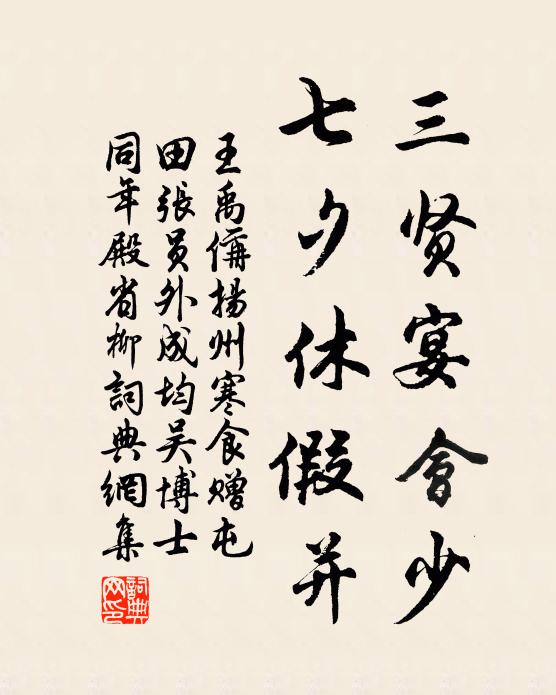 三贤宴會少
七夕休假并
王禹偁揚州寒食赠屯
田張员外成均吴博士
同年殿省柳詞典網集
詞典网印